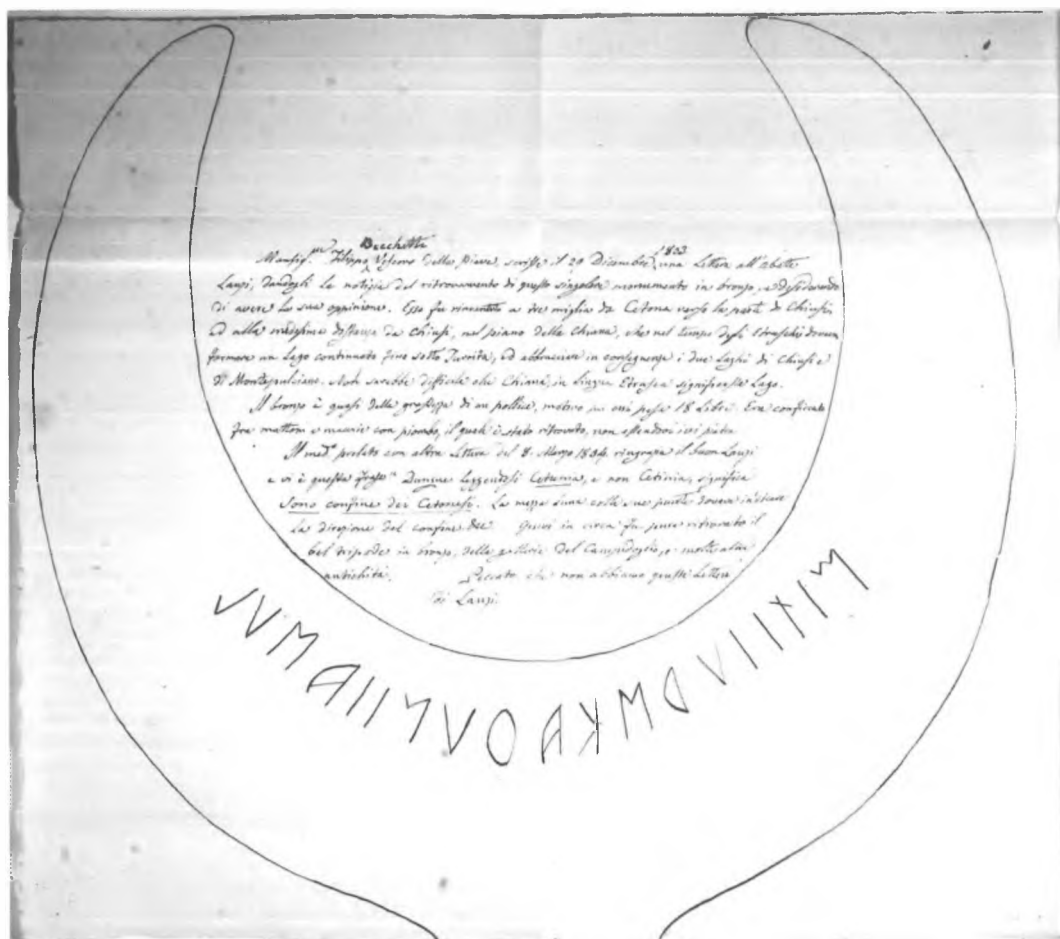 Becchetti
Monsig.r Filippo Vescovo della Pieve, scrisse il 29 Dicembre 1803 una Lettera all'abate
Lanzi, dandogli la notizia del ritrovamento di questo singolare monumento in bronzo, e desiderando
di avere la sua oppinione. Esso fu rinvenuto a tre miglia da Cetona verso la parte di Chiusi,
ed alla medesima distanza da Chiusi, nel piano della Chiana, che nel tempo degli Etruschi doveva
formare un Lago continuato fino sotto, ed abbracciare in conseguenza i due Laghi di Chiusi e
di Montepulciano. Non sarebbe difficile che Chiana, in Lingua Etrusca significasse Lago.
Il bronzo è quasi della grossezza di un pollice, motivo per cui pesa 18 Libre. Era conficcato
fra mattoni e macerie con piombo, il quale è stato ritrovato, non essendovi ivi pietra
Il med.o prelato con altra Lettera del 8. Marzo 1804 ringrazia il Lanzi
e vi è questa frase " Dunque leggendosi Cetrema, e non Cetinia, significa
Sono confine dei Cetonesi. La mezza Luna colle sue punte doveva indicare
la direzione del confine. Quivi in circa fu pure ritrovato il
bel tripode in bronzo, della galleria del Campidoglio, e molte altre
antichità. Peccato che non abbiamo queste Lettere
di Lanzi.